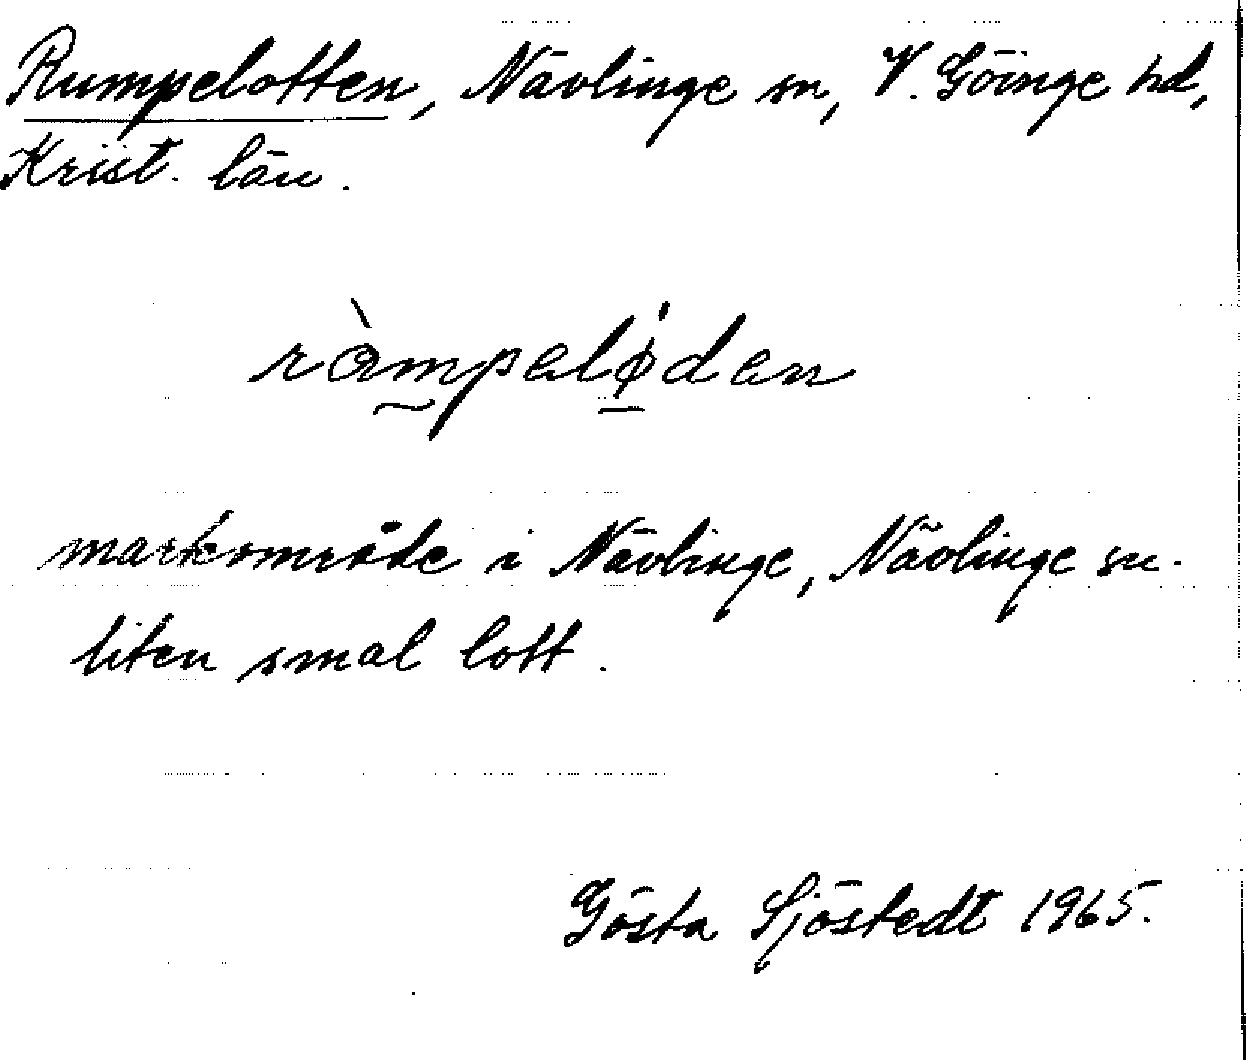 Rumpelotten, Nävlinge sn, V. Göinge hd,
Krist. län.
ràmpelǿden
markområde i Nävlinge, Nävlinge sn.
liten smal lott.
Gösta Sjöstedt 1965.